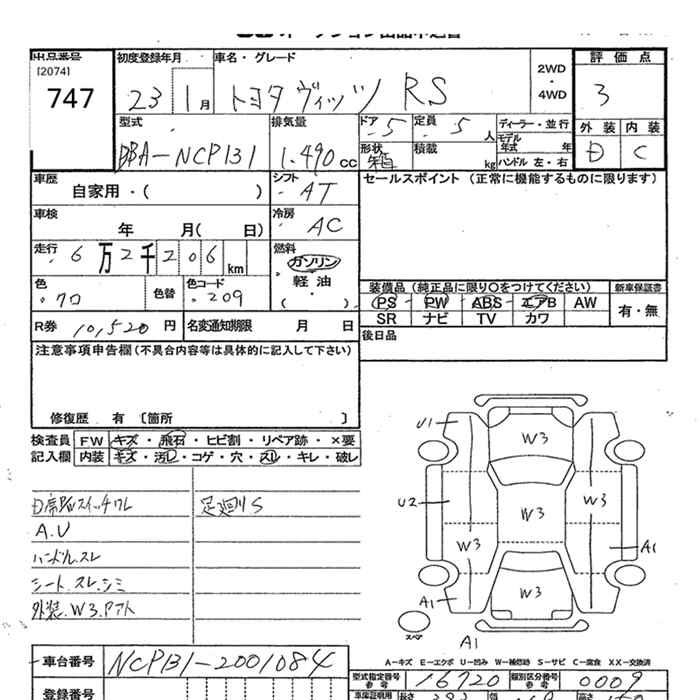 出品番号
[2074]
747
初度登録年月
23 1月
車名・グレード
トヨタ ヴィッツ RS
2WD
・
4WD
評価点
3
外装 内装
D C
型式
DBA-NCP131
排気量
1.490cc
ドア 5
定員 5人
ディーラー・並行
モデル年式 年
形状 箱
積載 kg
ハンドル 左・右
車歴
自家用・( )
シフト
AT
セールスポイント (正常に機能するものに限ります)
車検
年 月( 日)
冷房
AC
走行
6万2千206km
燃料
ガソリン
軽油
・
( )
色
・クロ
色替
色コード
・209
装備品 (純正品に限り○をつけてください)
PS PW ABS エアB AW
SR ナビ TV カワ
新車保証書
有・無
R券 10,520円
名変通知期限 月 日
後日品
注意事項申告欄(不具合内容等は具体的に記入して下さい)
修復歴 有 〔箇所 〕
検査員
記入欄
FW キズ・飛石・ヒビ割・リペア跡・×要
内装 キズ・汚レ・コゲ・穴・スレ・キレ・破レ
足廻りS
A.U
ハンドル.スレ
シート.スレ.シミ
外装.W3.
U1
W3
U2
W3
W3
W3
A1
W3
A1
スペア
A1
A-キズ E-エクボ U-凹み W-補修跡 S-サビ C-腐食 XX-交換済
車台番号
NCP131-2001084
型式指定番号 参考
16720
類別区分番号 参考
0009
登録番号
車庫証明用 参考
長さ